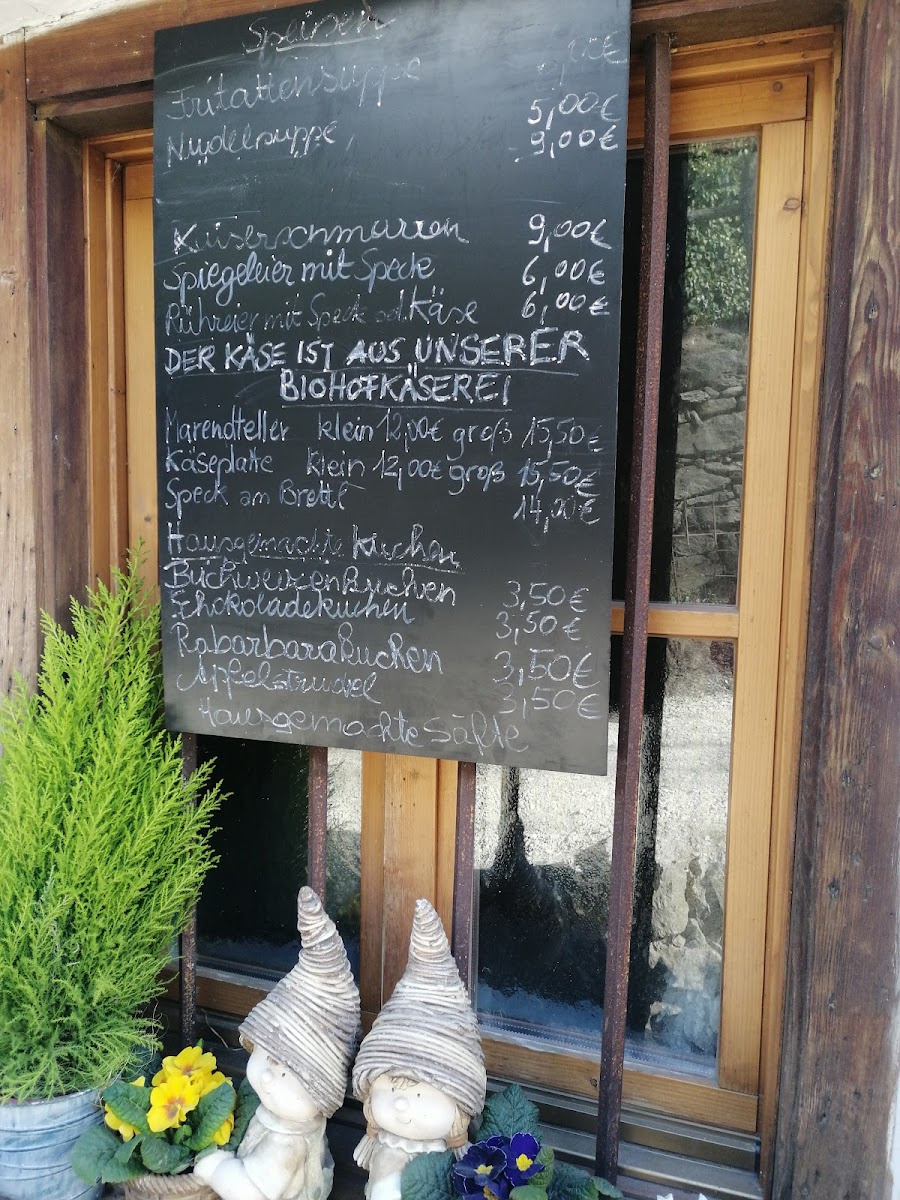 Speisen
Frittatensuppe 5,00€
Nudelsuppe 9,00€
Kaiserschmarren 9,00€
Spiegeleier mit Speck 6,00€
Rühreier mit Speck od. Käse 6,00€
DER KÄSE IST AUS UNSERER
BIOHOFKÄSEREI
Marendteller klein 12,00€ groß 15,50€
Käseplatte klein 12,00€ groß 15,50€
Speck am Brettl 14,00€
Hausgemachte Kuchen
Buchweizenkuchen 3,50€
Schokoladekuchen 3,50€
Rabarbarakuchen 3,50€
Apfelstrudel 3,50€
Hausgemachte Säfte